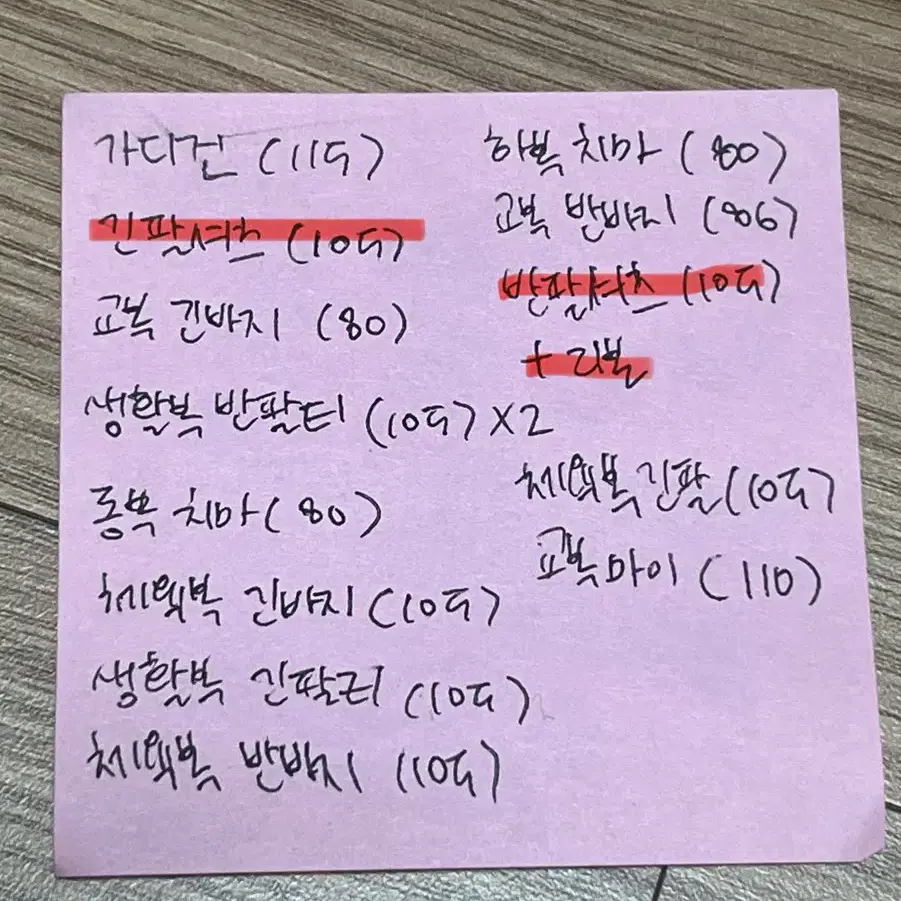 가디건 (115)
긴팔셔츠 (105)
교복 긴바지 (80)
생활복 반팔티 (105) X2
동복 치마 (80)
체육복 긴바지 (105)
생활복 긴팔티 (105)
체육복 반바지 (105)
하복 치마 (80)
교복 반바지 (86)
반팔셔츠 (105)
+ 리본
체육복 긴팔 (105)
교복마이 (110)